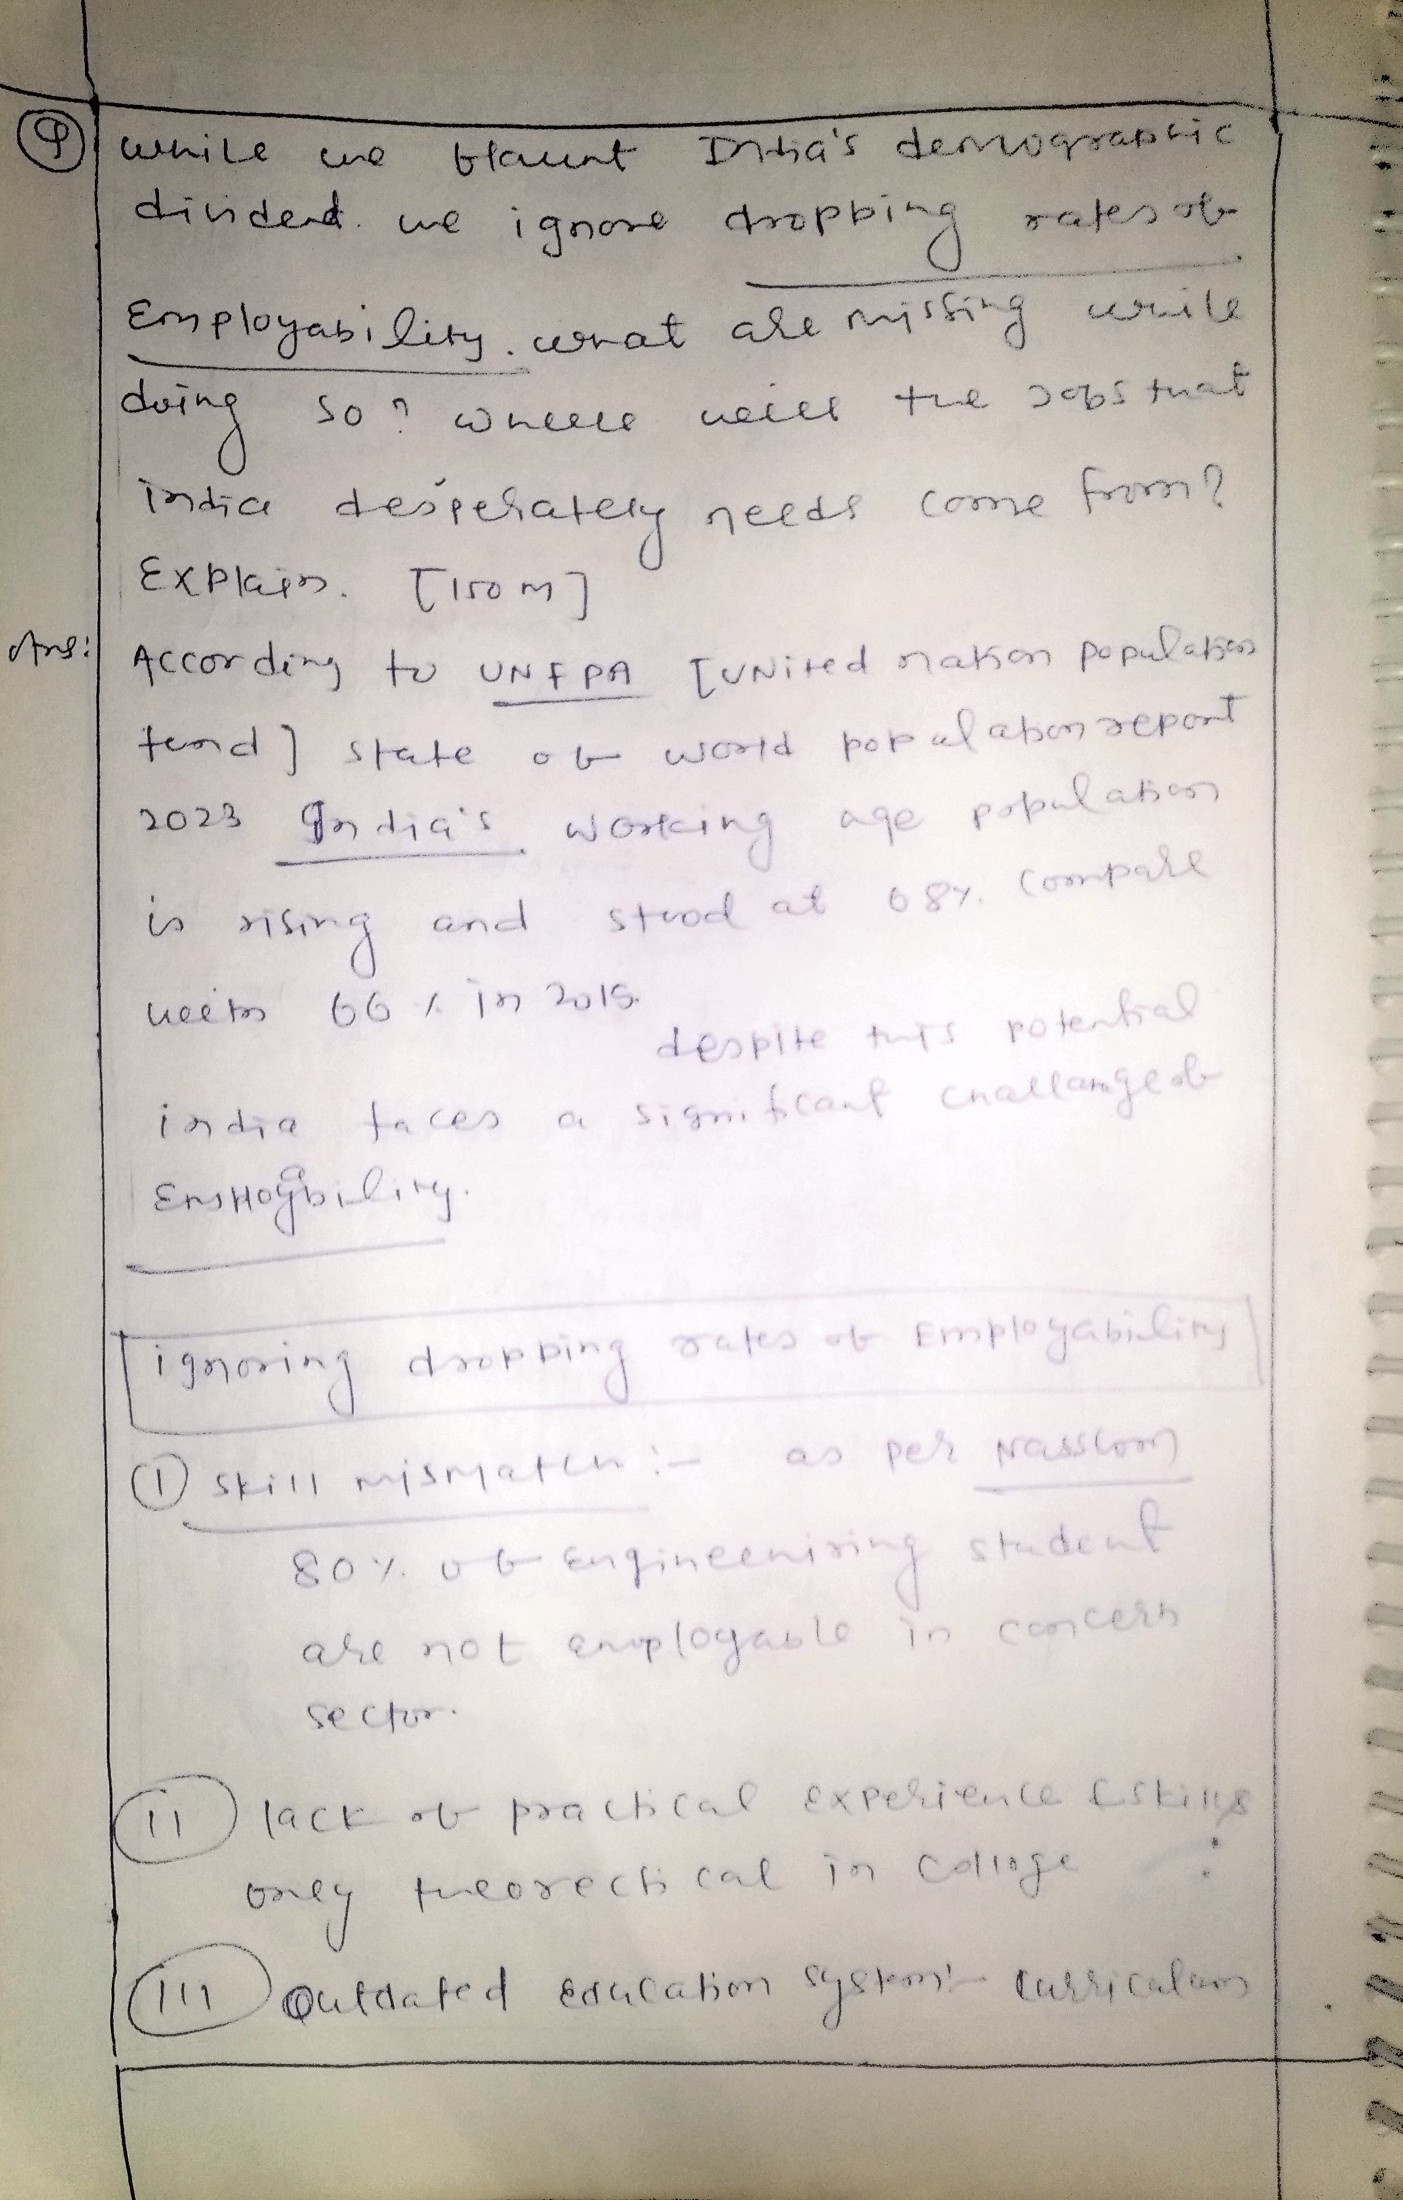 Q while we flaunt India's demographic
dividend. we ignore dropping rates of
Employability. what are missing while
doing so? where will the Jobs that
India desperately needs come from?
Explain. [150 m]
Ans: According to UNFPA [United nation population
fund] state of world population report
2023 India's working age population
is rising and stood at 68%. compare
with 66% in 2015.
despite this potential
india faces a significant challange of
Employability.
ignoring dropping rates of Employability
(I) skill mismatch :- as per Nasscom
80% of engineeniring student
are not employable in concern
sector.
(II) lack of practical experience & skills :
only theorectical in college
(III) Outdated education system:- curriculum